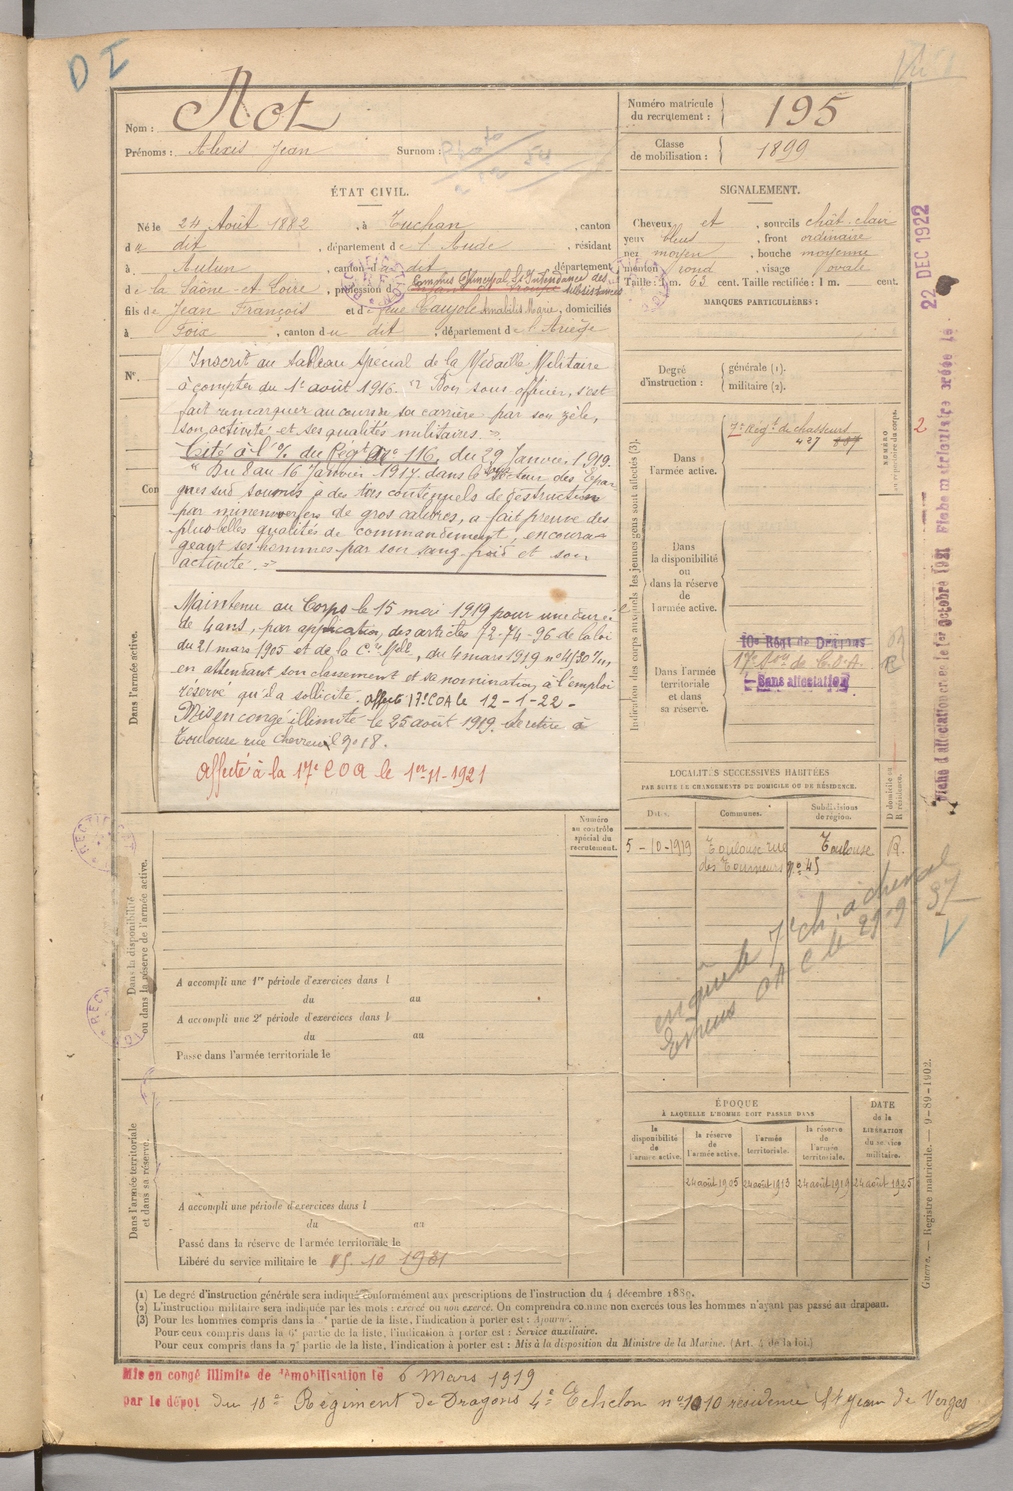 D I
Nom : Act
Prénoms : Alexis Jean Surnom :
Numéro matricule du recrutement : 195
Classe de mobilisation : 1899
ÉTAT CIVIL.
Né le 24 Août 1882, à Tuchan, canton
du dit, département de l'Aude, résidant
à Autun, canton du dit, département
de la Saône-et-Loire, profession de Commis Principal de l'Intendance des subsistances
fils de Jean François et de feue Caujole Amabilis Marie, domiciliés
à Foix, canton du dit, département de l'Ariège
SIGNALEMENT.
Cheveux et, sourcils chât. clair
yeux bleus, front ordinaire
nez moyen, bouche moyenne
menton rond, visage ovale
Taille : 1 m. 63 cent. Taille rectifiée : 1 m. cent.
MARQUES PARTICULIÈRES :
Degré d'instruction : générale (1).
militaire (2).
N°.
Con
Inscrit au tableau spécial de la Médaille Militaire
à compter du 1er août 1916. " Bon sous officier, s'est
fait remarquer au cours de sa carrière par son zèle,
son activité et ses qualités militaires. "
Cité à l'O/ du Régt n° 116 du 29 Janvier 1919.
" Du 8 au 16 Janvier 1917 dans le sous secteur des Epar
ges sud soumis à des tirs continuels de destruction
par minenwerfers de gros calibres, a fait preuve des
plus belles qualités de commandement, encoura-
geant ses hommes par son sang-froid et son
activité. "
Maintenu au Corps le 15 mai 1919 pour une durée
de 4 ans, par application des articles 72-74-96 de la loi
du 21 mars 1905 et de la Cre Mlle, du 4 mars 1919
en attendant son classement et sa nomination à l'emploi
réservé qu'il a sollicité. Affecté 17e COA le 12-1-22-
Mis en congé illimité le 25 août 1919. Se retire à
Toulouse rue Chevreul n° 18.
Affecté à la 17e COA le 1er-11-1921
Dans l'armée active.
Indication des corps auxquels les jeunes gens sont affectés (3).
NUMÉRO
au répertoire du corps.
Dans l'armée active.
7e Régt de chasseurs
427
2
Dans
la disponibilité
ou
dans la réserve
de
l'armée active.
Dans l'armée
territoriale
et dans
sa réserve.
10e Régt de Dragons
17e Son de C.O.A.
Sans affectation
R
22 DEC 1922
LOCALITÉS SUCCESSIVES HABITÉES
PAR SUITE DE CHANGEMENTS DE DOMICILE OU DE RÉSIDENCE.
Dates. Communes. Subdivisions de région. D domicile ou R résidence.
5-10-1919 Toulouse rue Toulouse R.
des Tourneurs n° 45
Dans la disponibilité
ou dans la réserve de l'armée active.
Numéro
au contrôle
spécial du
recrutement.
A accompli une 1re période d'exercices dans l
du au
A accompli une 2e période d'exercices dans l
du au
Passé dans l'armée territoriale le
Dans l'armée territoriale
et dans sa réserve.
A accompli une période d'exercices dans l
du au
Passé dans la réserve de l'armée territoriale le
Libéré du service militaire le 15. 10 1931
ÉPOQUE
À LAQUELLE L'HOMME DOIT PASSER DANS
DATE
de la
LIBÉRATION
du service
militaire.
la
disponibilité
de
l'armée active.
la réserve
de
l'armée active.
l'armée
territoriale.
la réserve
de
l'armée
territoriale.
24 août 1905 24 août 1913 24 août 1919 24 août 1925
Guerre. — Registre matricule. — 9-89-1902.
(1) Le degré d'instruction générale sera indiqué conformément aux prescriptions de l'instruction du 4 décembre 1889.
(2) L'instruction militaire sera indiquée par les mots : exercé ou non exercé. On comprendra comme non exercés tous les hommes n'ayant pas passé au drapeau.
(3) Pour les hommes compris dans la partie de la liste, l'indication à porter est : Ajourné.
Pour ceux compris dans la 6e partie de la liste, l'indication à porter est : Service auxiliaire.
Pour ceux compris dans la 7e partie de la liste, l'indication à porter est : Mis à la disposition du Ministre de la Marine. (Art. 4 de la loi.)
Mis en congé illimité de démobilisation le 6 Mars 1919
par le dépôt du 10e Régiment de Dragons 4e Echelon n° 1010 résidence St Jean de Verges